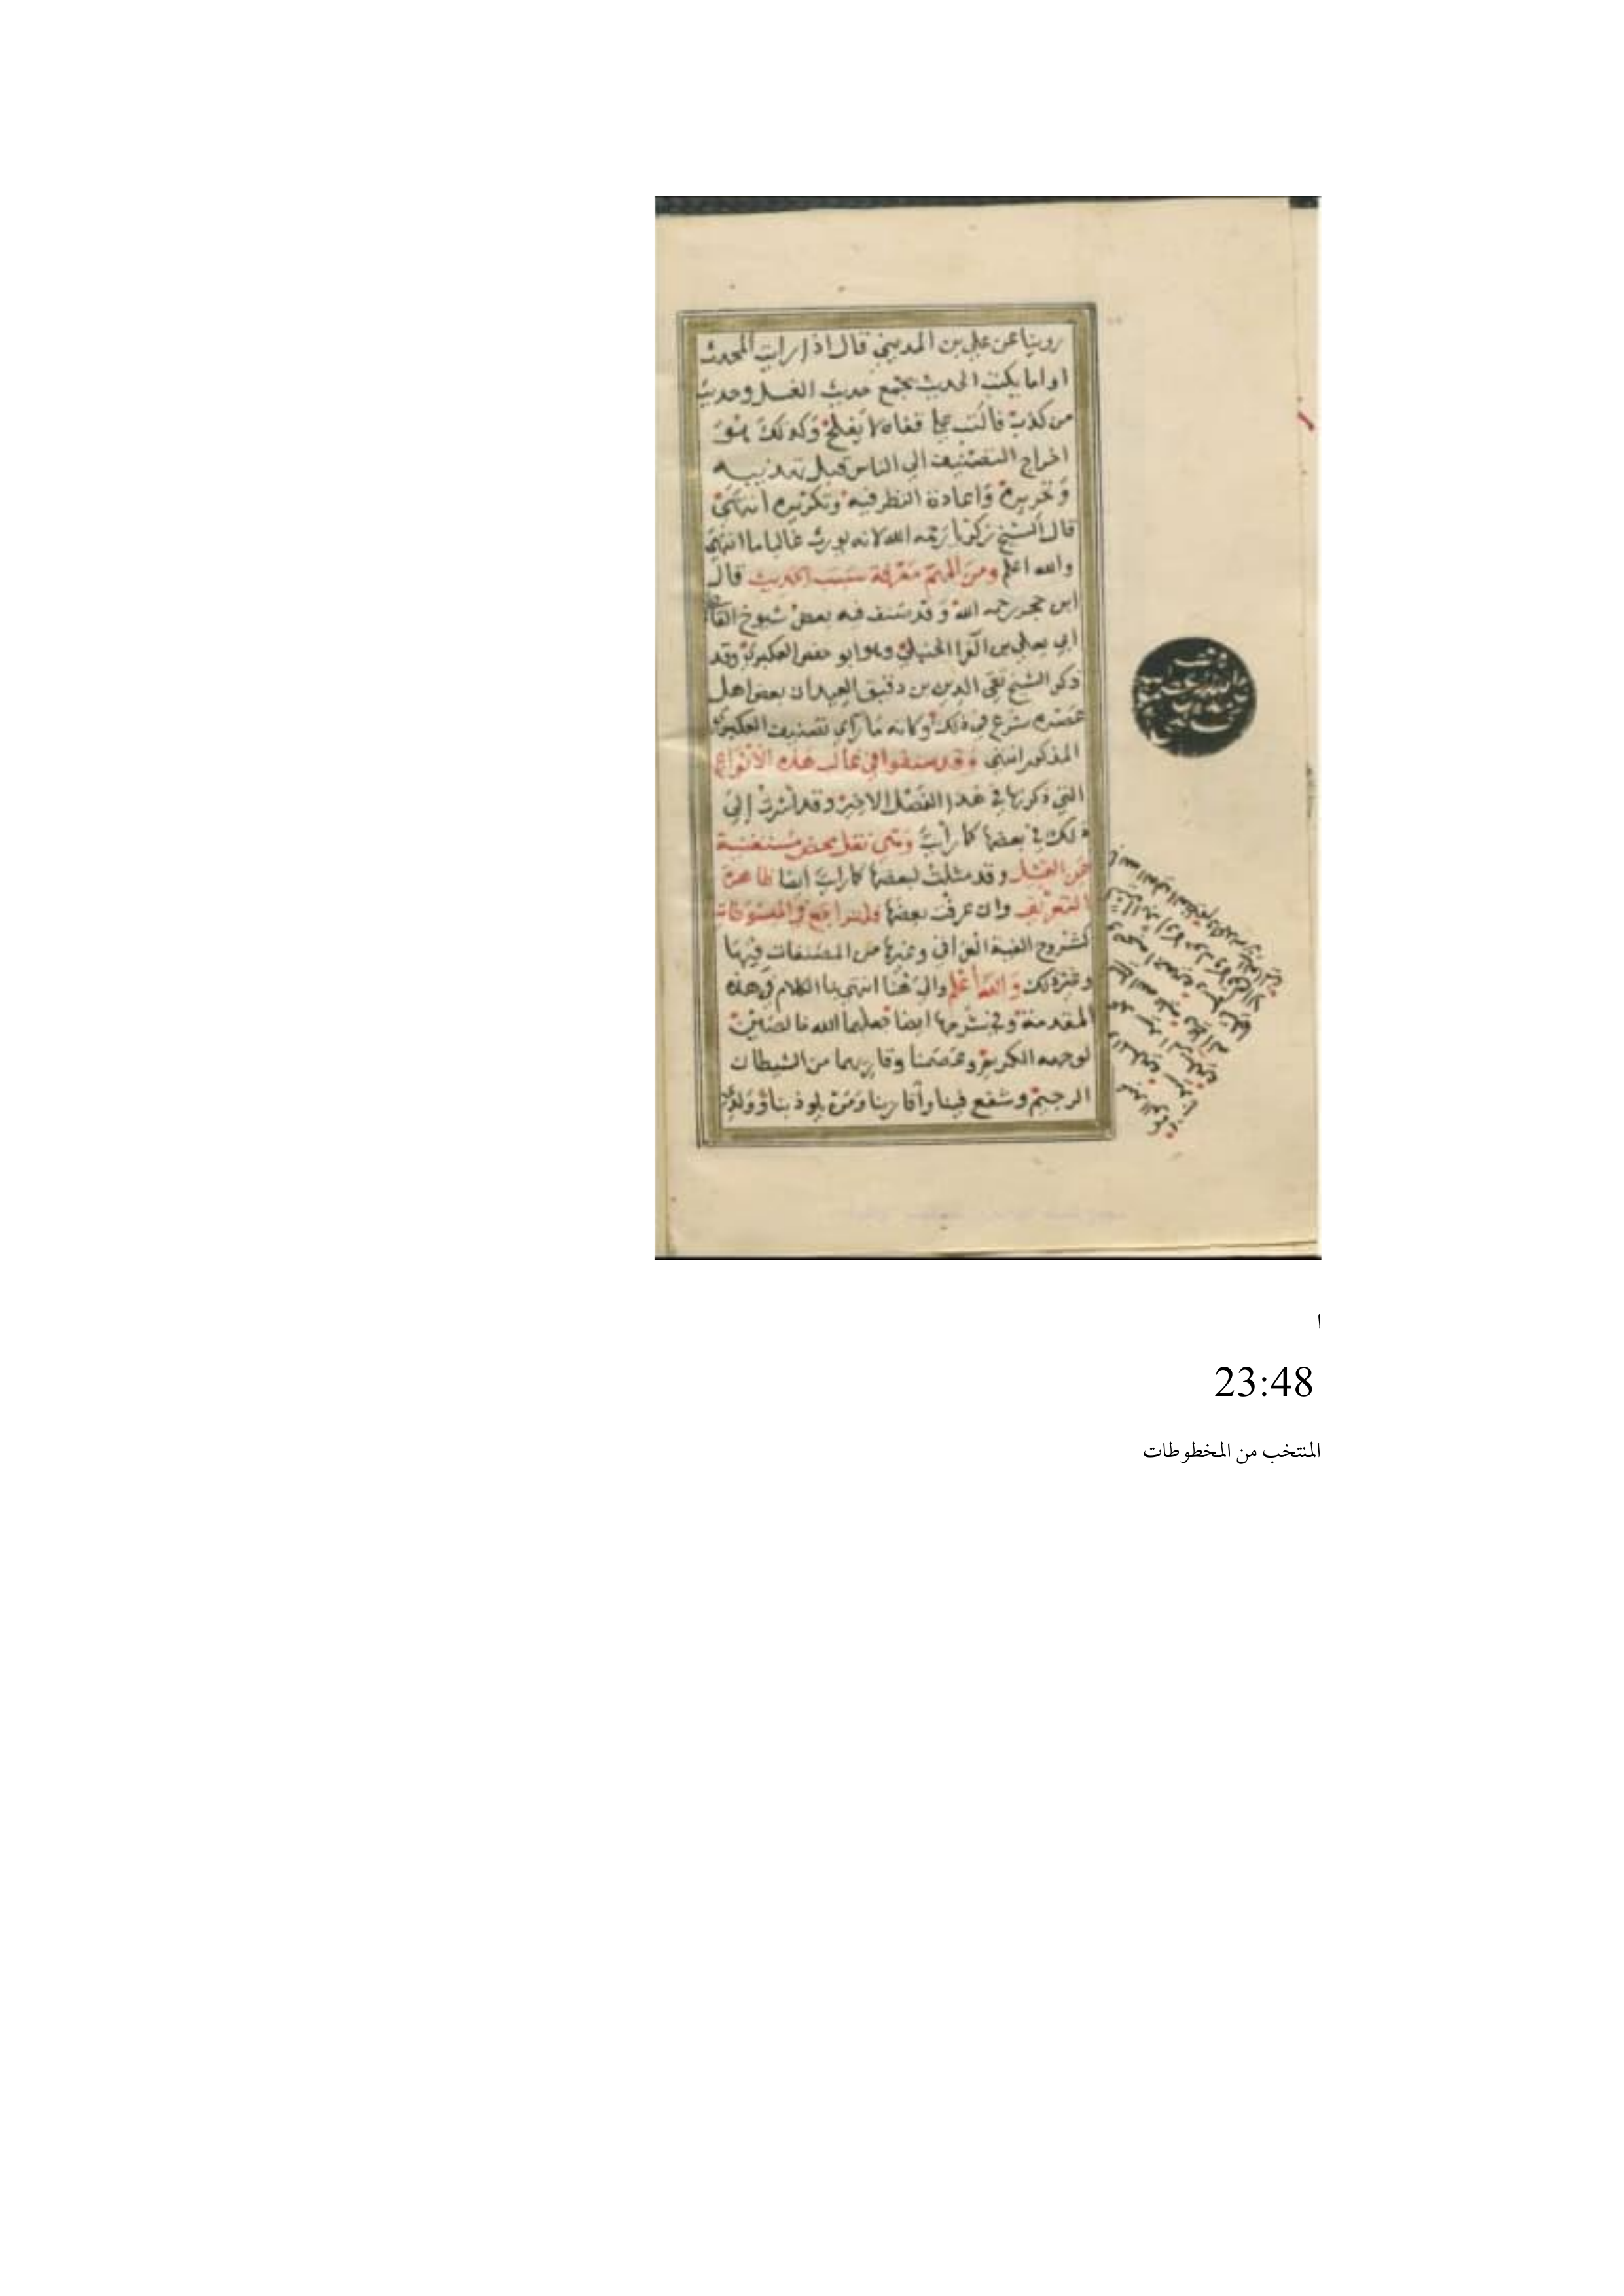 روينا عن علي بن المديني قال اذا رايت المحدث
اول ما يكتب الحديث يجمع حديث الغسل وحديث
من كذب فاكتب على قفاه لا يفلح وكذلك يتقى
اخراج التصنيف الى الناس قبل تهذيبه
وتحريره واعادة النظر فيه وتكريره انتهى
قال الشيخ زكريا رحمه الله لانه يورث غالبا ما انتهى
والله اعلم ومن المهم معرفة سبب الحديث قال
ابن حجر رحمه الله وقد صنف فيه بعض شيوخ القاضي
ابي يعلى بن الفرا الحنبلي وهو ابو حفص العكبري وقد
ذكر الشيخ تقي الدين بن دقيق العيد ان بعض اهل
عصره شرع في ذلك وكانه ما راى تصنيف العكبري
المذكور انتهى وقد صنفوا في غالب هذه الانواع
التي ذكرتها في هذا الفصل الاخير وقد اشرت إلى
ذلك في بعضها كما رأيت وهي نقل محض مستغنية
عن التمثيل وقد مثلت لبعضها كما رايت ايضا ظاهرة
التعريف وان عرفت بعضها فلتراجع في المبسوطات
كشروح الفية العراقي وغيرها من المصنفات فيها
وغير ذلك والله أعلم والى هنا انتهى بنا الكلام في هذه
المقدمة وفي شرحها ايضا جعلهما الله خالصتين
لوجهه الكريم وعصمنا وقاريهما من الشيطان
الرجيم وشفع فينا وأقاربنا ومن يلوذ بنا
ا
23:48
المنتخب من المخطوطات